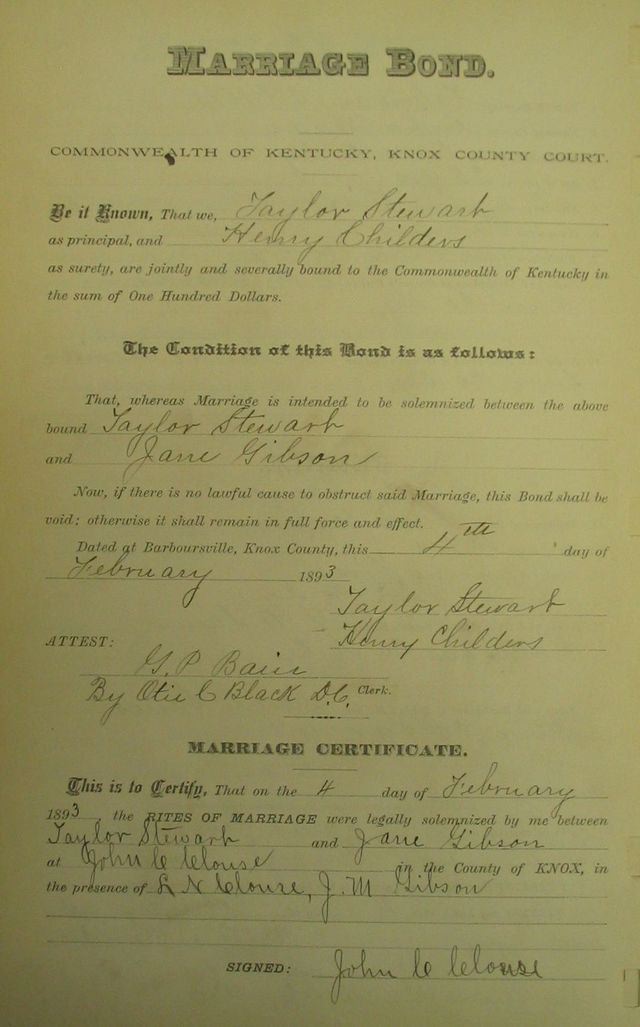 MARRIAGE BOND.
COMMONWEALTH OF KENTUCKY, KNOX COUNTY COURT.
Be it Known, That we, Taylor Stewart
as principal, and Henry Childers
as surety, are jointly and severally bound to the Commonwealth of Kentucky in
the sum of One Hundred Dollars.
The Condition of this Bond is as follows:
That, whereas Marriage is intended to be solemnized between the above
bound Taylor Stewart
and Jane Gibson
Now, if there is no lawful cause to obstruct said Marriage, this Bond shall be
void; otherwise it shall remain in full force and effect.
Dated at Barboursville, Knox County, this 4th day of
February 1893
Taylor Stewart
Henry Childers
ATTEST:
G. P Bain
By Otis C Black D.C. Clerk.
MARRIAGE CERTIFICATE.
This is to Certify, That on the 4 day of February
1893, the RITES OF MARRIAGE were legally solemnized by me between
Taylor Stewart and Jane Gibson
at John C Clouse in the County of KNOX, in
the presence of L N Clouse, J. M Gibson
SIGNED: John C Clouse